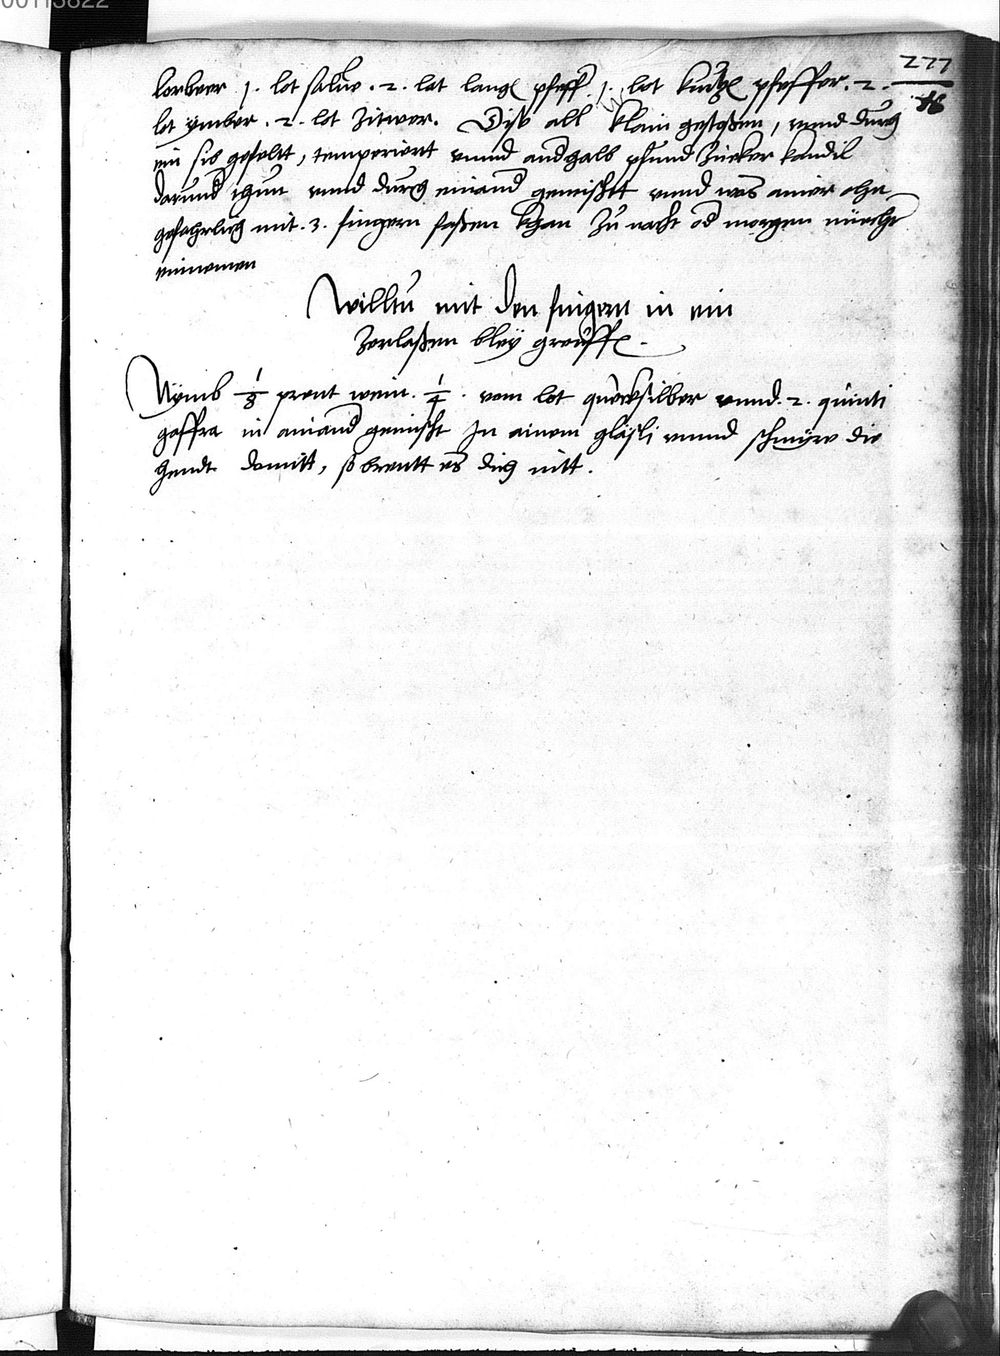 277
lorbeer .1. lot salue .2. lot lang pfeff .1. lot pfeffer .2.
lot ymber .2. lot Zitwer. Diß all klain gestoßen, vnnd durch
ein sib geselt, temperiert vnnd andhalb pfund Zucker kandil
darund thun vnnd durch einand gemischt vnnd was ainer ohn
gefahrlich mit .3. fingern faßen khan Zu nacht od morgen
einnemen
Willtu mit den fingern in ein
Zerlaßen bley greuffe.
Nymb 1/8 prent wein 1/4 vom lot quecksilber vnnd .2. quinti
gaffra in ainand gemischt In ainem gläsli vnnd schmyre die
hendt damitt, so brentt es dich nitt.